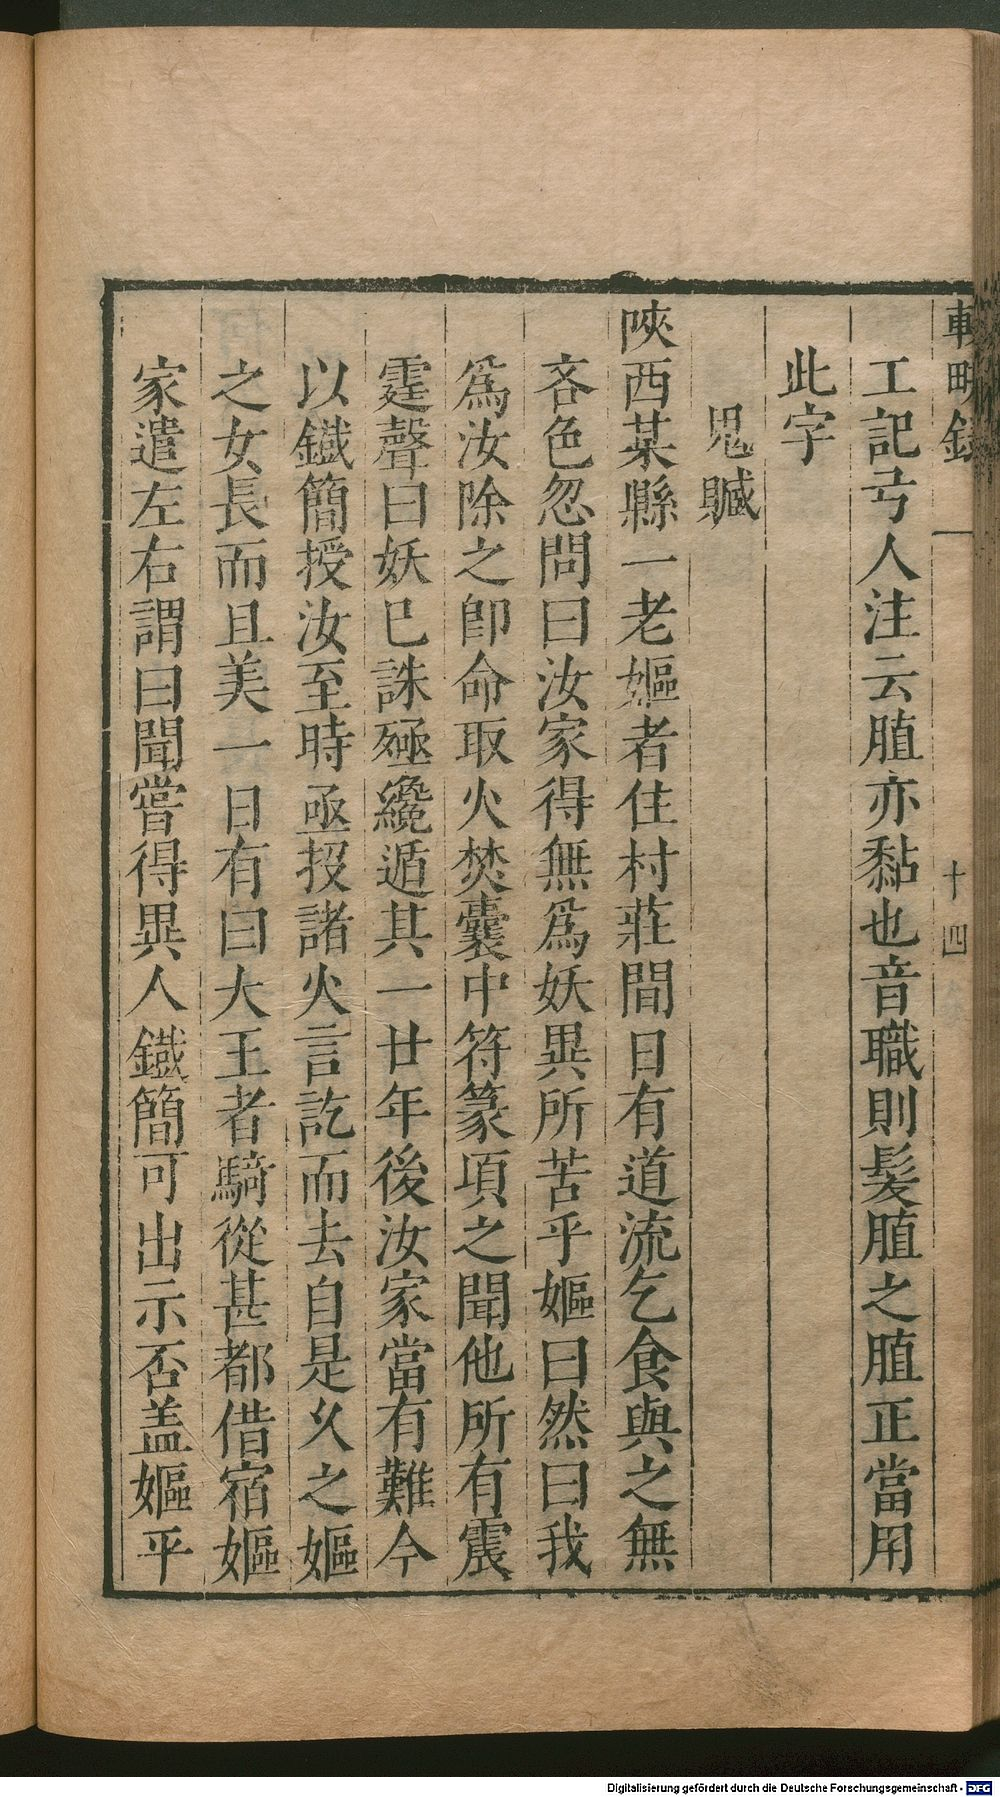 輟畊錄
十四
工記弓人注云䐈亦黏也音職則髮䐈之䐈正當用
此字
鬼贓
陝西某縣一老嫗者住村莊間日有道流乞食與之無
吝色忽問曰汝家得無爲妖異所苦乎嫗曰然曰我
爲汝除之卽命取火焚囊中符篆頃之聞他所有震
霆聲曰妖已誅殛纔遁其一廿年後汝家當有難今
以鐵簡授汝至時亟投諸火言訖而去自是久之嫗
之女長而且美一日有曰大王者騎從甚都借宿嫗
家遣左右謂曰聞嘗得異人鐵簡可出示否盖嫗平
Digitalisierung gefördert durch die Deutsche Forschungsgemeinschaft - DFG